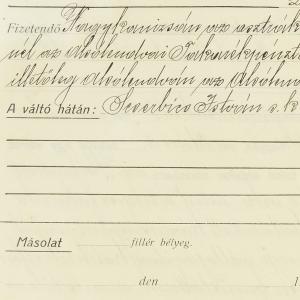 Fizetendő Nagykanizsán az osztrák
nél az Alsólendvai Takarékpénzt
illetőleg Alsólendván az Alsólend
A váltó hátán: Severbics István s. k
Másolat fillér bélyeg.
den 1